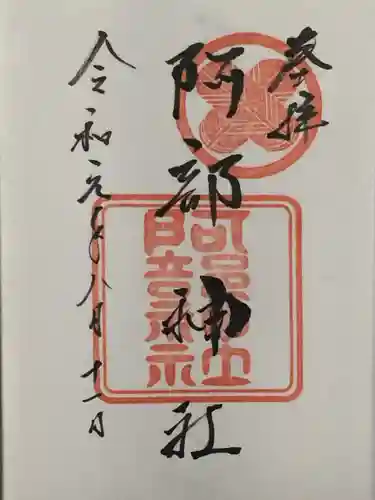 奉拝
阿部神社
阿部神社
令和元年八月十一日